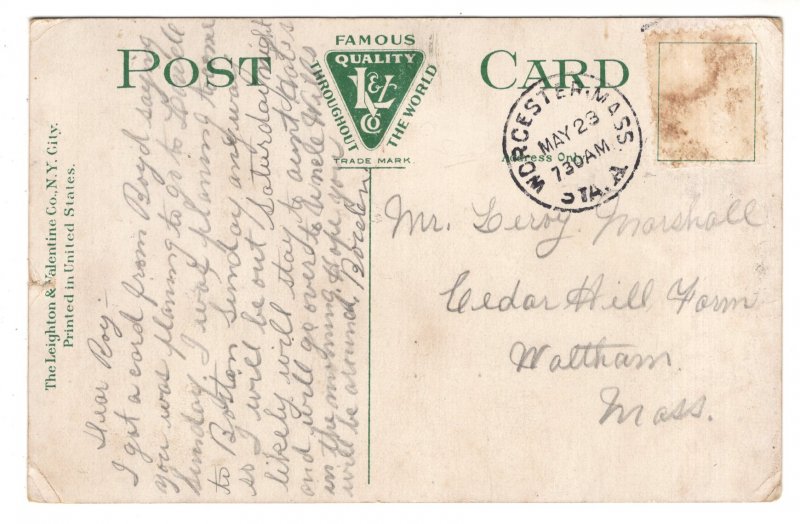 POST CARD
FAMOUS
QUALITY
L&V
CO
THROUGHOUT
THE WORLD
TRADE MARK
Address Only
WORCESTER, MASS.
MAY 23
730AM
STA. A
The Leighton & Valentine Co., N.Y. City.
Printed in United States.
Dear Roy-
I got a card from Boyd saying
you was planing to go to
Sunday. I was planing to come
to Bolton Sunday anyway
so I will be out Saturday night
likely will stay to aunt
and will go over to Uncle Will's
in the morning. Hope you
will be around,
Mr. Leroy Marshall
Cedar Hill Farm
Waltham.
Mass.